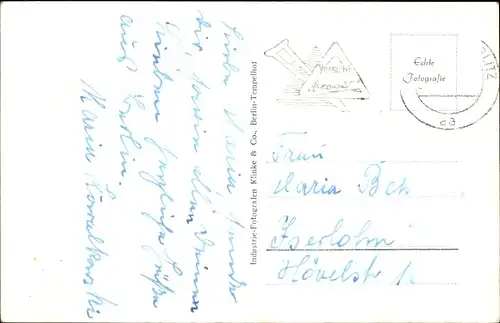 Liebe Maria sende
dir, sowie allen Deinen
Lieben herzliche Grüße
aus Berlin.
Maria Kowalkowski
Industrie-Fotografen Klinke & Co., Berlin-Tempelhof
Echte
Fotografie
Frau
Maria Beck
Iserlohn
Hövelstr